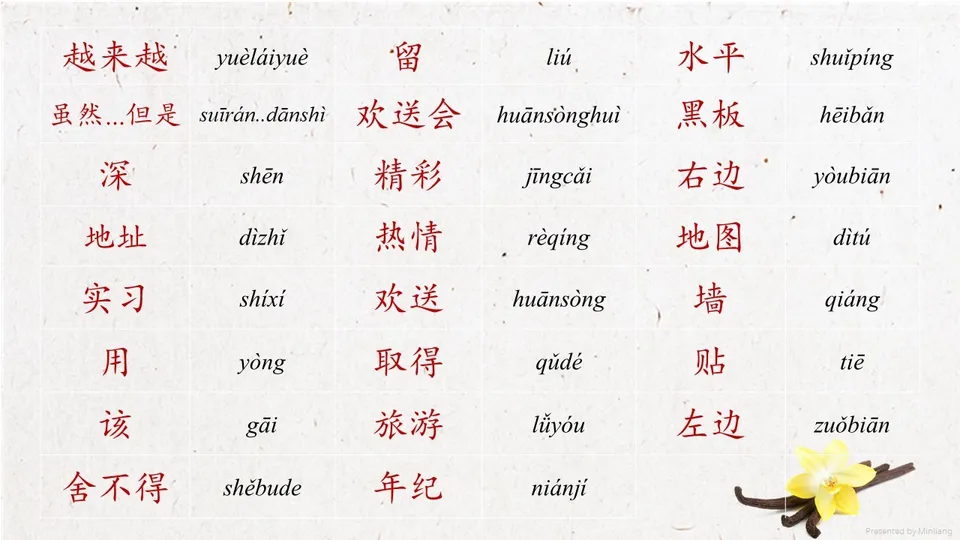 越来越 yuèláiyuè 留 liú 水平 shuǐpíng
虽然...但是 suīrán..dānshì 欢送会 huānsònghuì 黑板 hēibǎn
深 shēn 精彩 jīngcǎi 右边 yòubiān
地址 dìzhǐ 热情 rèqíng 地图 dìtú
实习 shíxí 欢送 huānsòng 墙 qiáng
用 yòng 取得 qǔdé 贴 tiē
该 gāi 旅游 lǚyóu 左边 zuǒbiān
舍不得 shěbude 年纪 niánjí
Presented by Minliang